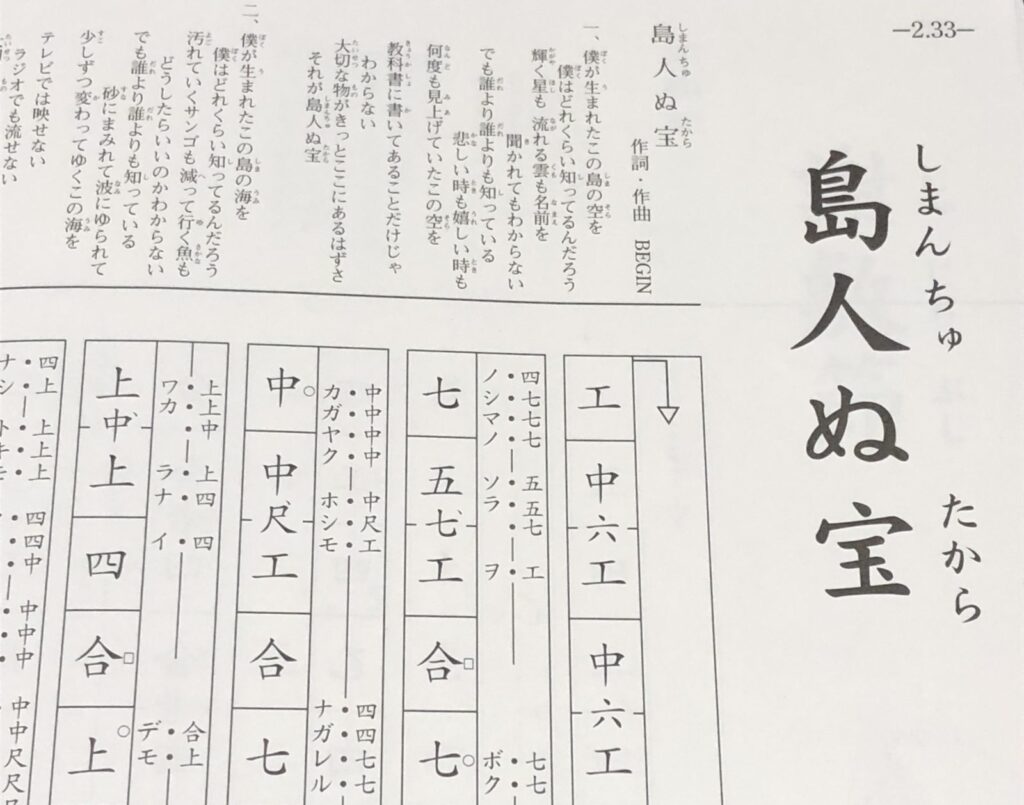 —2.33—
しまんちゅ たから
島人ぬ宝
島人ぬ宝
作詞・作曲 BEGIN
一、僕が生まれたこの島の空を
僕はどれくらい知ってるんだろう
輝く星も 流れる雲も名前を
聞かれてもわからない
でも誰より誰よりも知っている
悲しい時も嬉しい時も
何度も見上げていたこの空を
教科書に書いてあることだけじゃ
わからない
大切な物がきっとここにあるはずさ
それが島人ぬ宝
二、僕が生まれたこの島の海を
僕はどれくらい知ってるんだろう
汚れていくサンゴも減って行く魚も
どうしたらいいのかわからない
でも誰より誰よりも知っている
砂にまみれて波にゆられて
少しずつ変わってゆくこの海を
テレビでは映せない
ラジオでも流せない
工 中 六 工 中 六 工
四七七七 五五七 工 七七
ノシマノ ソラ ヲ ボク
七 五 七 工 合 七
中中中中 中尺工 四四七七
カガヤク ホシモ ナガレル
中 中 尺 工 合 七
上上中 上四 四 合上
ワカ ラナ イ デモ
上 中 上 四 合 上
四上 上上上 四四中 中中中 中中尺尺